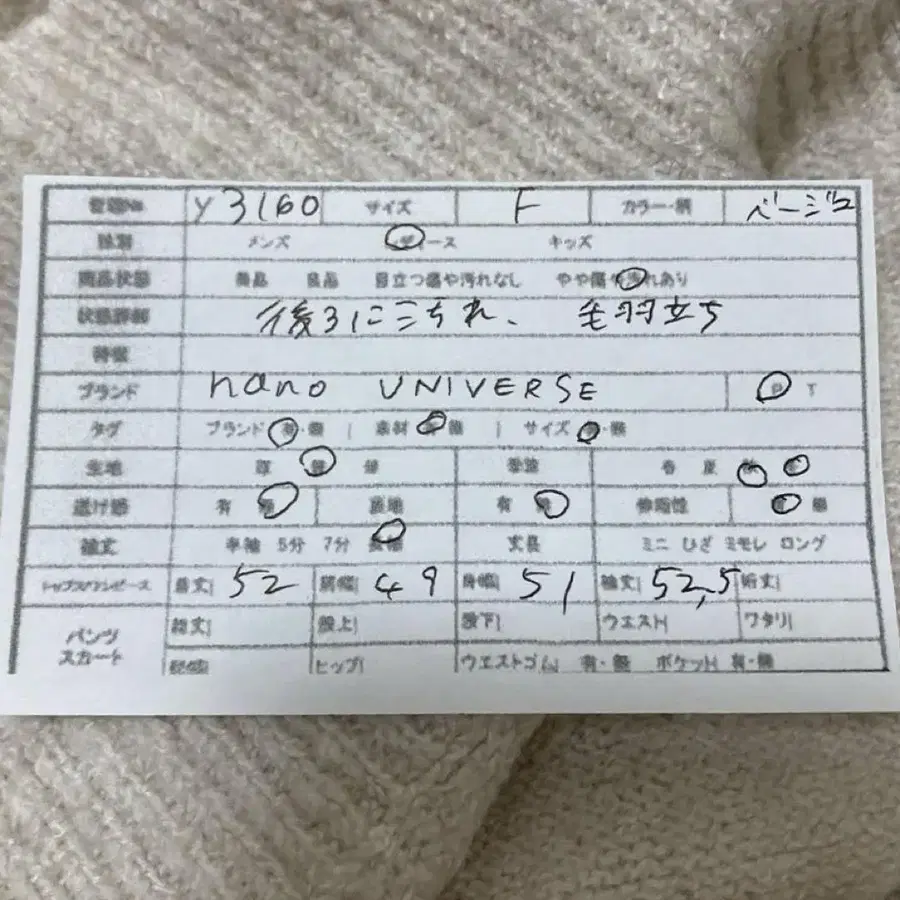 管理No Y3160 サイズ F カラー・柄 ベージュ
性別 メンズ レディース キッズ
商品状態 美品 良品 目立つ傷や汚れなし やや傷や汚れあり
状態詳細 後ろによごれ、毛羽立ち
特徴
ブランド nano UNIVERSE P T
タグ ブランド 有・無 | 素材 有・無 | サイズ 有・無
生地 厚 普 薄 季節 春 夏 秋 冬
透け感 有 無 裏地 有 無 伸縮性 有 無
袖丈 半袖 5分 7分 長袖 丈長 ミニ ひざ ミモレ ロング
トップス/ワンピース 着丈| 52 肩幅| 49 身幅| 51 袖丈| 52,5 裄丈|
パンツ スカート 総丈| 股上| 股下| ウエスト| ワタリ|
裾幅| ヒップ| ウエストゴム| 有・無 ポケット| 有・無